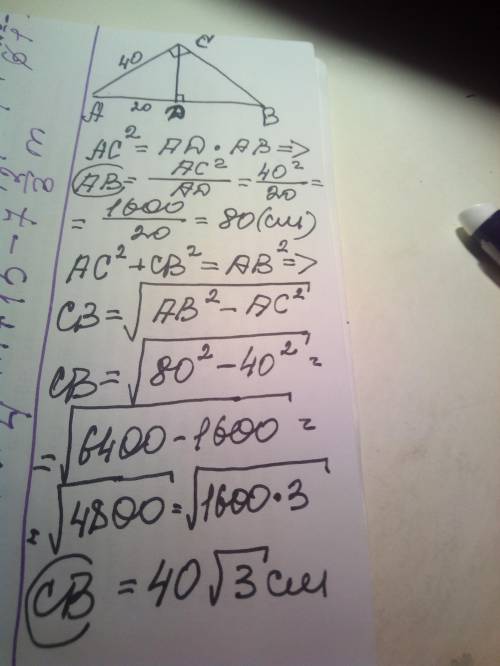 C
40
A 20 D B
AC² = AD · AB =>
AB = AC²/AD = 40²/20 =
= 1600/20 = 80 (см)
AC² + CB² = AB² =>
CB = √(AB² − AC²)
CB = √(80² − 40²) =
= √(6400 − 1600) =
= √4800 = √(1600 · 3)
CB = 40√3 см